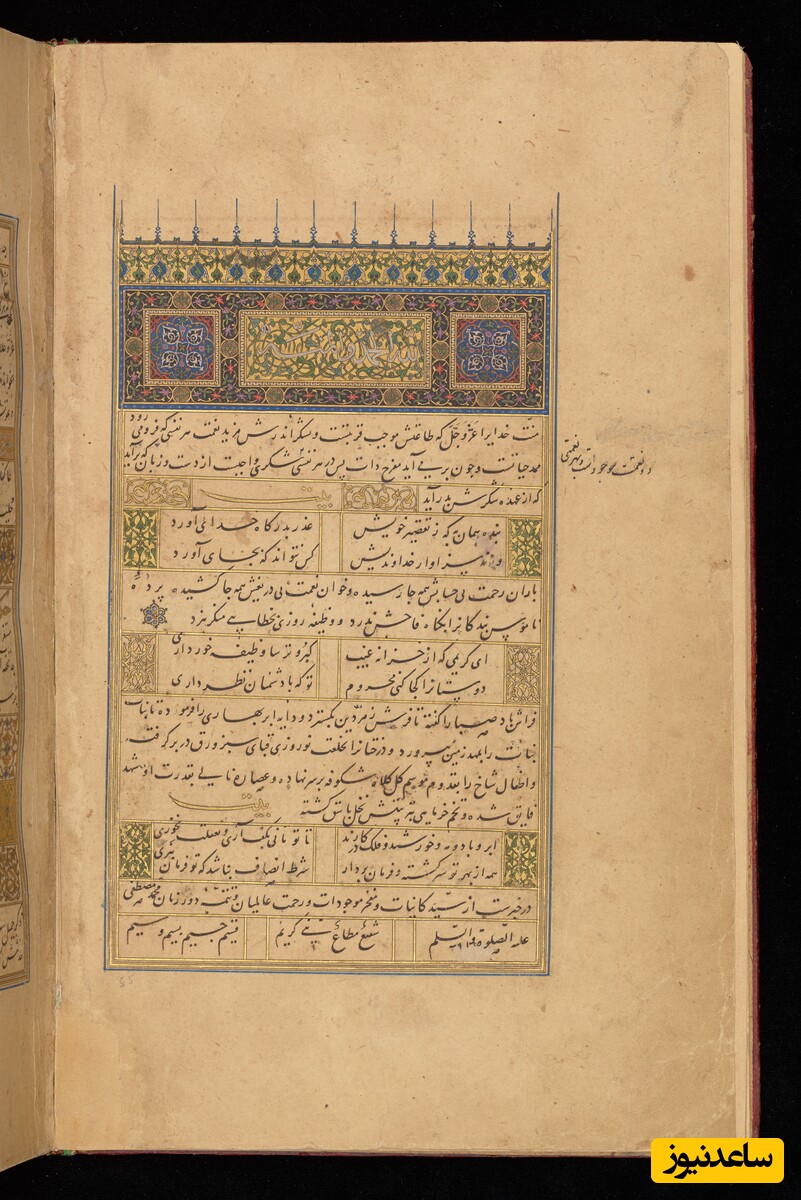 منت خدایرا عزّ وجلّ که طاعتش موجب قربتست و بشکر اندرش مزید نعمت هر نفسی که فرو می رود
ممد حیاتست وچون بر می آید مفرح ذات پس در هر نفسی شکری واجبست از دست وزبان که برآید
دو نعمت موجودست وبر هر نعمتی
که از عهده شکرش بدر آید
بیت
بنده همان به که ز تقصیر خویش
عذر بدرگاه خدای آورد
ورنه سزاوار خداوندیش
کس نتواند که بجای آورد
باران رحمت بی حسابش همه جا رسیده وخوان نعمت بی دریغش همه جا کشیده پرده
ناموس بندگان را بگناه فاحش ندرد و وظیفه روزی بخطای منکر نبرد
ای کریمی که از خزانه غیب
کبر و ترسا وظیفه خور داری
دوستانرا کجا کنی محروم
تو که با دشمنان نظر داری
فراش باد صبا را گفته تا فرش زمردین بگسترد و دایه ابر بهاری را فرموده تا بنات
نبات را بمهد زمین بپرورد و درختانرا بخلعت نوروزی قبای سبز ورق در بر گرفت
واطفال شاخ را بقدوم موسم گل کلاه شکوفه بر سر نهاده وعصاره نایی بقدرت او شهد
فایق شده و تخم خرمایی بتربیتش نخل باسق گشته
بیت
ابر و باد و مه و خورشید و فلک در کارند
تا تو نانی بکف آری و بغفلت نخوری
همه از بهر تو سرگشته و فرمان بردار
شرط انصاف نباشد که تو فرمان نبری
در خبرست از سید کاینات ومفخر موجودات ورحمت عالمیان وتتمه دور زمان محمد مصطفی
علیه الصلوة والسلم
شفیع مطاع نبی کریم
قسیم جسیم بسیم وسیم
ساعدنیوز